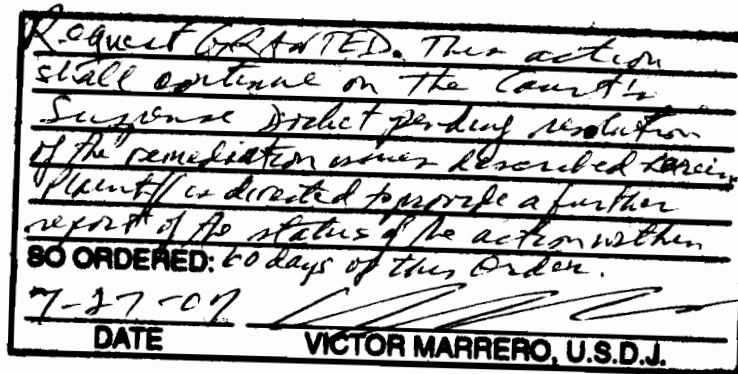 Request GRANTED. This action
shall continue on the Court's
Suspense Docket pending resolution
of the remediation issues described herein.
Plaintiff is directed to provide a further
report of the status of the action within
SO ORDERED: 60 days of this Order.
7-27-07
DATE VICTOR MARRERO, U.S.D.J.